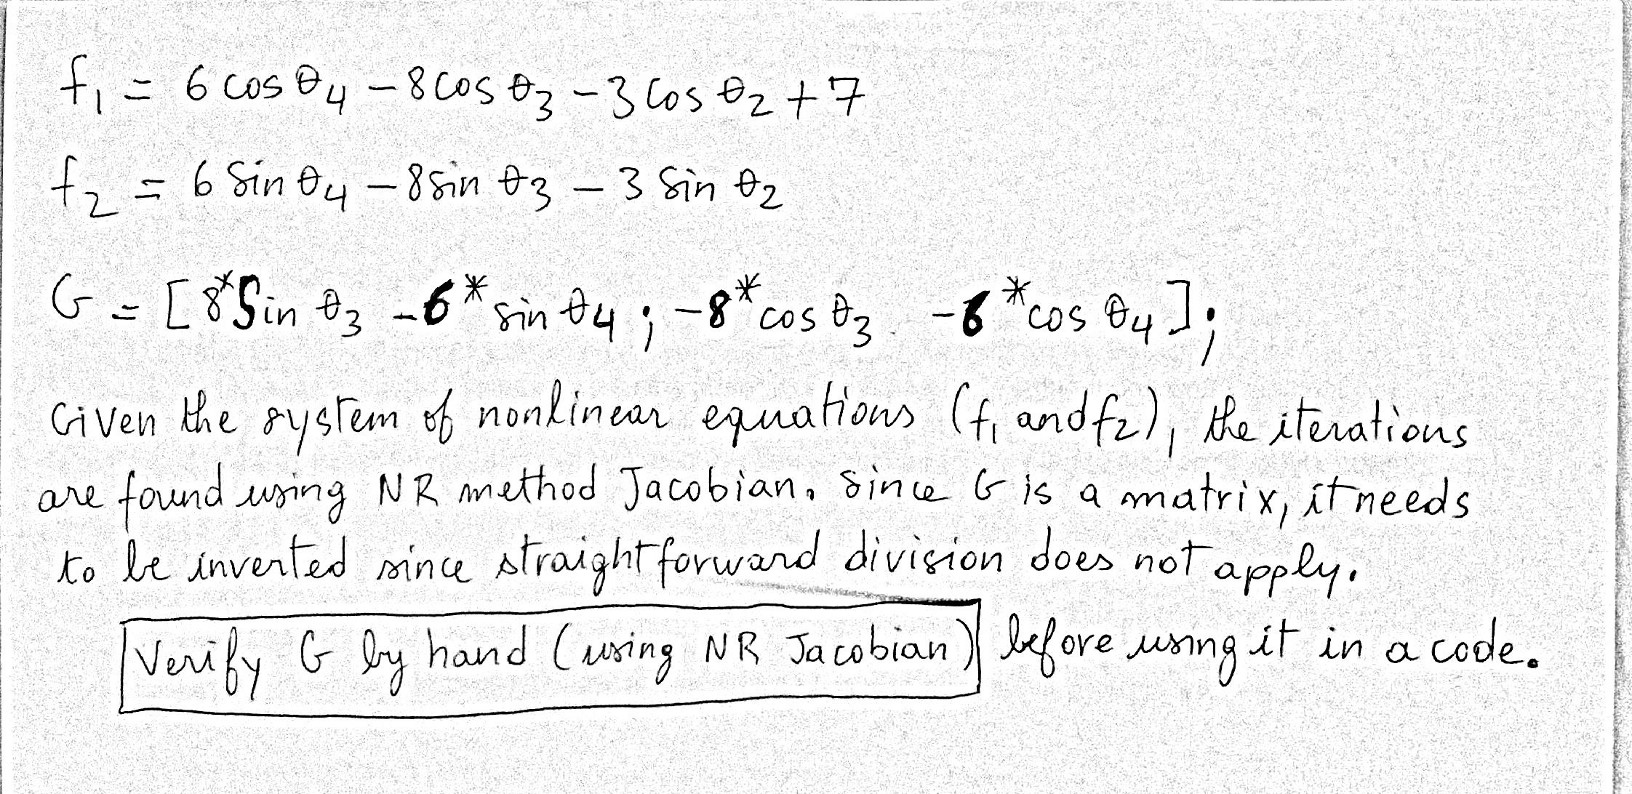 f₁ = 6 cos θ₄ - 8 cos θ₃ - 3 cos θ₂ + 7
f₂ = 6 sin θ₄ - 8 sin θ₃ - 3 sin θ₂
G = [8*Sin θ₃ -6*sin θ4 ; -8*cos θ₃ -6*cos θ₄];
Given the system of nonlinear equations (f₁ and f₂), the iterations
are found using NR method Jacobian. Since G is a matrix, it needs
to be inverted since straightforward division does not apply.
Verify G by hand (using NR Jacobian) before using it in a code.